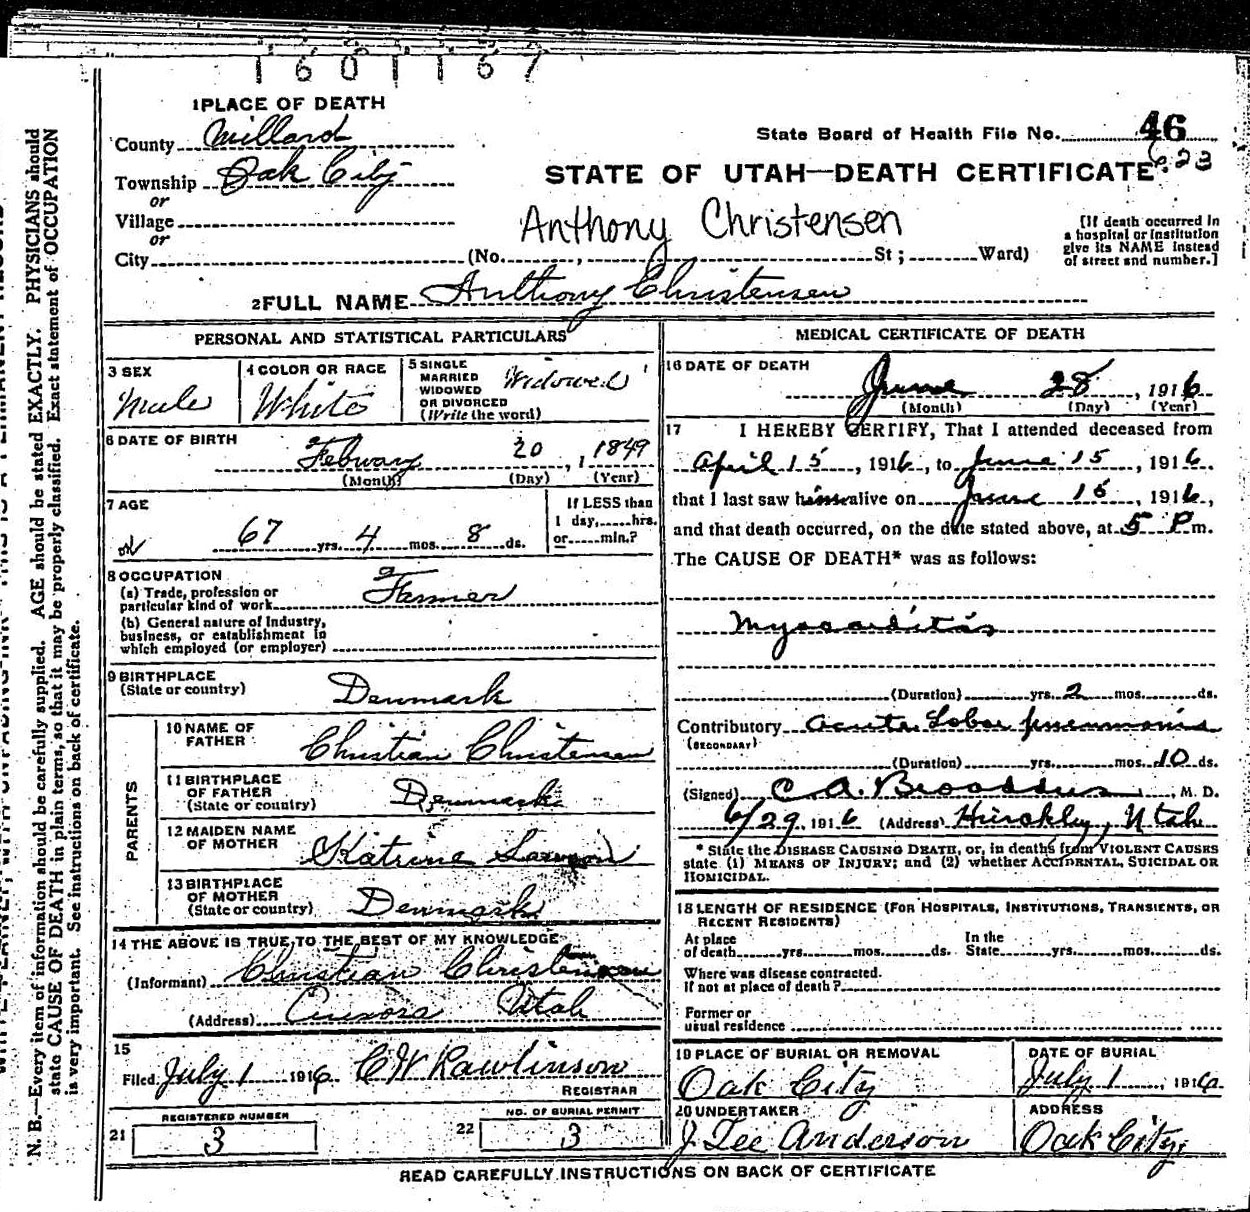 1601167
1 PLACE OF DEATH
County Millard
State Board of Health File No. 46
623
Township Oak City
STATE OF UTAH—DEATH CERTIFICATE
or
Village
or
Anthony Christensen
[If death occurred in a hospital or institution give its NAME instead of street and number.]
City (No. , St ; Ward)
2 FULL NAME Anthony Christensen
PERSONAL AND STATISTICAL PARTICULARS
3 SEX
Male
4 COLOR OR RACE
White
5 SINGLE
MARRIED
WIDOWED
OR DIVORCED
(Write the word)
Widowed
6 DATE OF BIRTH
Febuary 20 , 1849
(Month) (Day) (Year)
7 AGE
67 yrs. 4 mos. 8 ds.
If LESS than
1 day, hrs.
or min.?
8 OCCUPATION
(a) Trade, profession or
particular kind of work Farmer
(b) General nature of Industry,
business, or establishment in
which employed (or employer)
9 BIRTHPLACE
(State or country) Denmark
PARENTS
10 NAME OF
FATHER Christian Christensen
11 BIRTHPLACE
OF FATHER
(State or country) Denmark
12 MAIDEN NAME
OF MOTHER Katrine
13 BIRTHPLACE
OF MOTHER
(State or country) Denmark
14 THE ABOVE IS TRUE TO THE BEST OF MY KNOWLEDGE
(Informant) Christian Christensen
(Address) Aurora Utah
15
Filed July 1 1916 C W Rawlinson
REGISTRAR
REGISTERED NUMBER
21 3
NO. OF BURIAL PERMIT
22 3
MEDICAL CERTIFICATE OF DEATH
16 DATE OF DEATH
June 28 , 1916
(Month) (Day) (Year)
17 I HEREBY CERTIFY, That I attended deceased from
April 15 , 1916 , to June 15 , 1916 .
that I last saw him alive on June 15 , 1916 ,
and that death occurred, on the date stated above, at 5 P m.
The CAUSE OF DEATH* was as follows:
Myocarditas
(Duration) yrs. 2 mos. ds.
Contributory acute Lobar pneumonia
(SECONDARY)
(Duration) yrs. mos. 10 ds.
(Signed) C. A. Broaddus , M. D.
6/29 , 1916 (Address) Hinckley, Utah
* State the DISEASE CAUSING DEATH, or, in deaths from VIOLENT CAUSES
state (1) MEANS OF INJURY; and (2) whether ACCIDENTAL, SUICIDAL OR
HOMICIDAL.
18 LENGTH OF RESIDENCE (FOR HOSPITALS, INSTITUTIONS, TRANSIENTS, OR
RECENT RESIDENTS)
At place In the
of death yrs. mos. ds. State yrs. mos. ds.
Where was disease contracted.
if not at place of death?
Former or
usual residence
19 PLACE OF BURIAL OR REMOVAL
Oak City
DATE OF BURIAL
July 1 , 1916
20 UNDERTAKER
J Lee Anderson
ADDRESS
Oak City
READ CAREFULLY INSTRUCTIONS ON BACK OF CERTIFICATE
N. B.—Every item of information should be carefully supplied. AGE should be stated EXACTLY. PHYSICIANS should
state CAUSE OF DEATH in plain terms, so that it may be properly classified. Exact statement of OCCUPATION
is very important. See instructions on back of certificate.